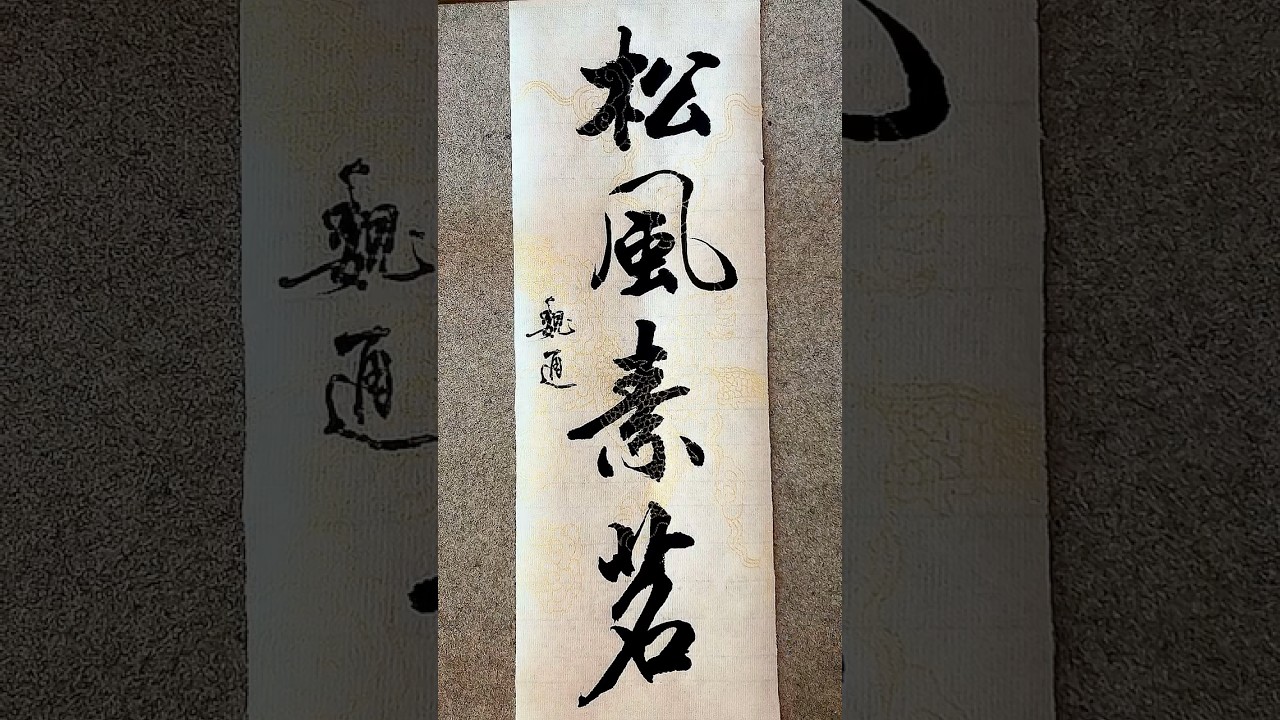 松風素茗
魏通